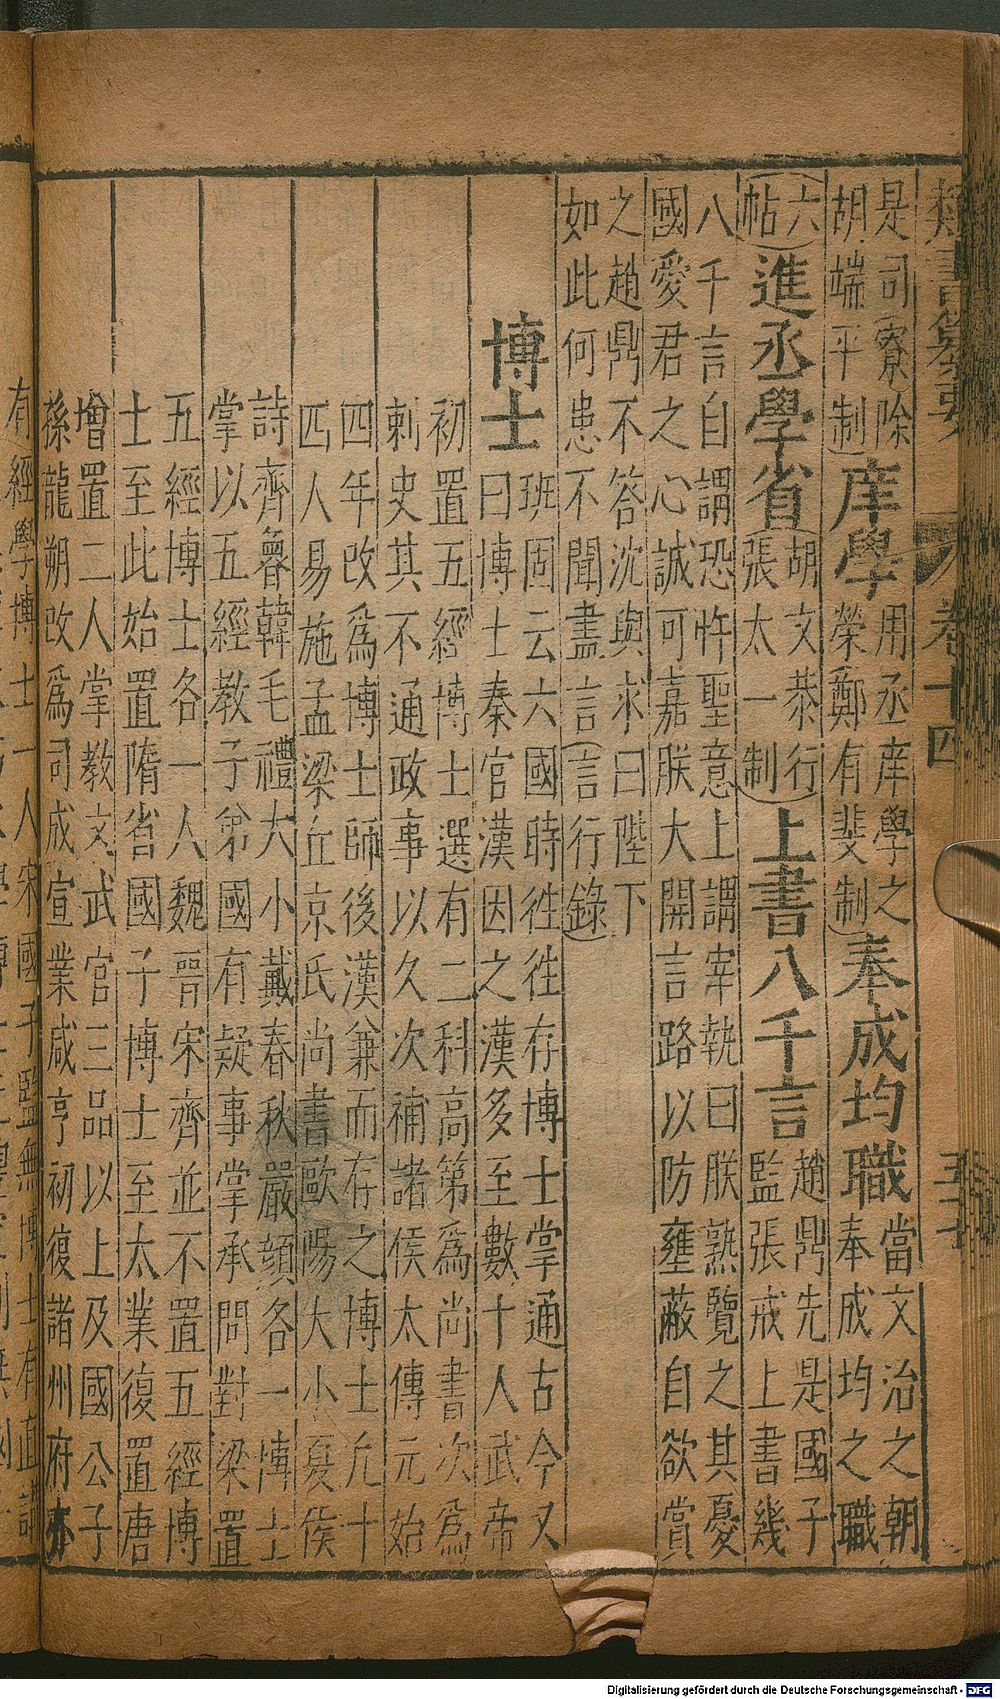 卷十四
是司寮除
胡端平制
庠學
用丞庠學之
榮鄭有斐制
奉成均職
當文治之朝
奉成均之職
六
帖
進丞學省
胡文恭行
張太一制
上書八千言
趙鼎先是國子
監張戒上書幾
八千言自謂恐忤聖意上謂宰執曰朕熟覽之其憂
國愛君之心誠可嘉朕大開言路以防壅蔽自欲賞
之趙鼎不答沈與求曰陛下
如此何患不聞盡言言行錄
博士
班固云六國時徃徃存博士掌通古今又
曰博士秦官漢因之漢多至數十人武帝
初置五經博士選有二科高第爲尚書次爲
刺史其不通政事以久次補諸侯太傳元始
四年改爲博士師後漢兼而存之博士凢十
四人易施孟梁丘京氏尚書歐陽大小夏侯
詩齊魯韓毛禮大小戴春秋嚴顔各一博士
掌以五經教子弟國有疑事掌承問對梁置
五經博士各一人魏晋宋齊並不置五經博
士至此始置隋省國子博士至太業復置唐
增置二人掌教文武官三品以上及國公子
孫龍朔改爲司成宣業咸亨初復諸州府亦
有經學博士一人宋國子監無博士有直講
Digitalisierung gefördert durch die Deutsche Forschungsgemeinschaft - DFG